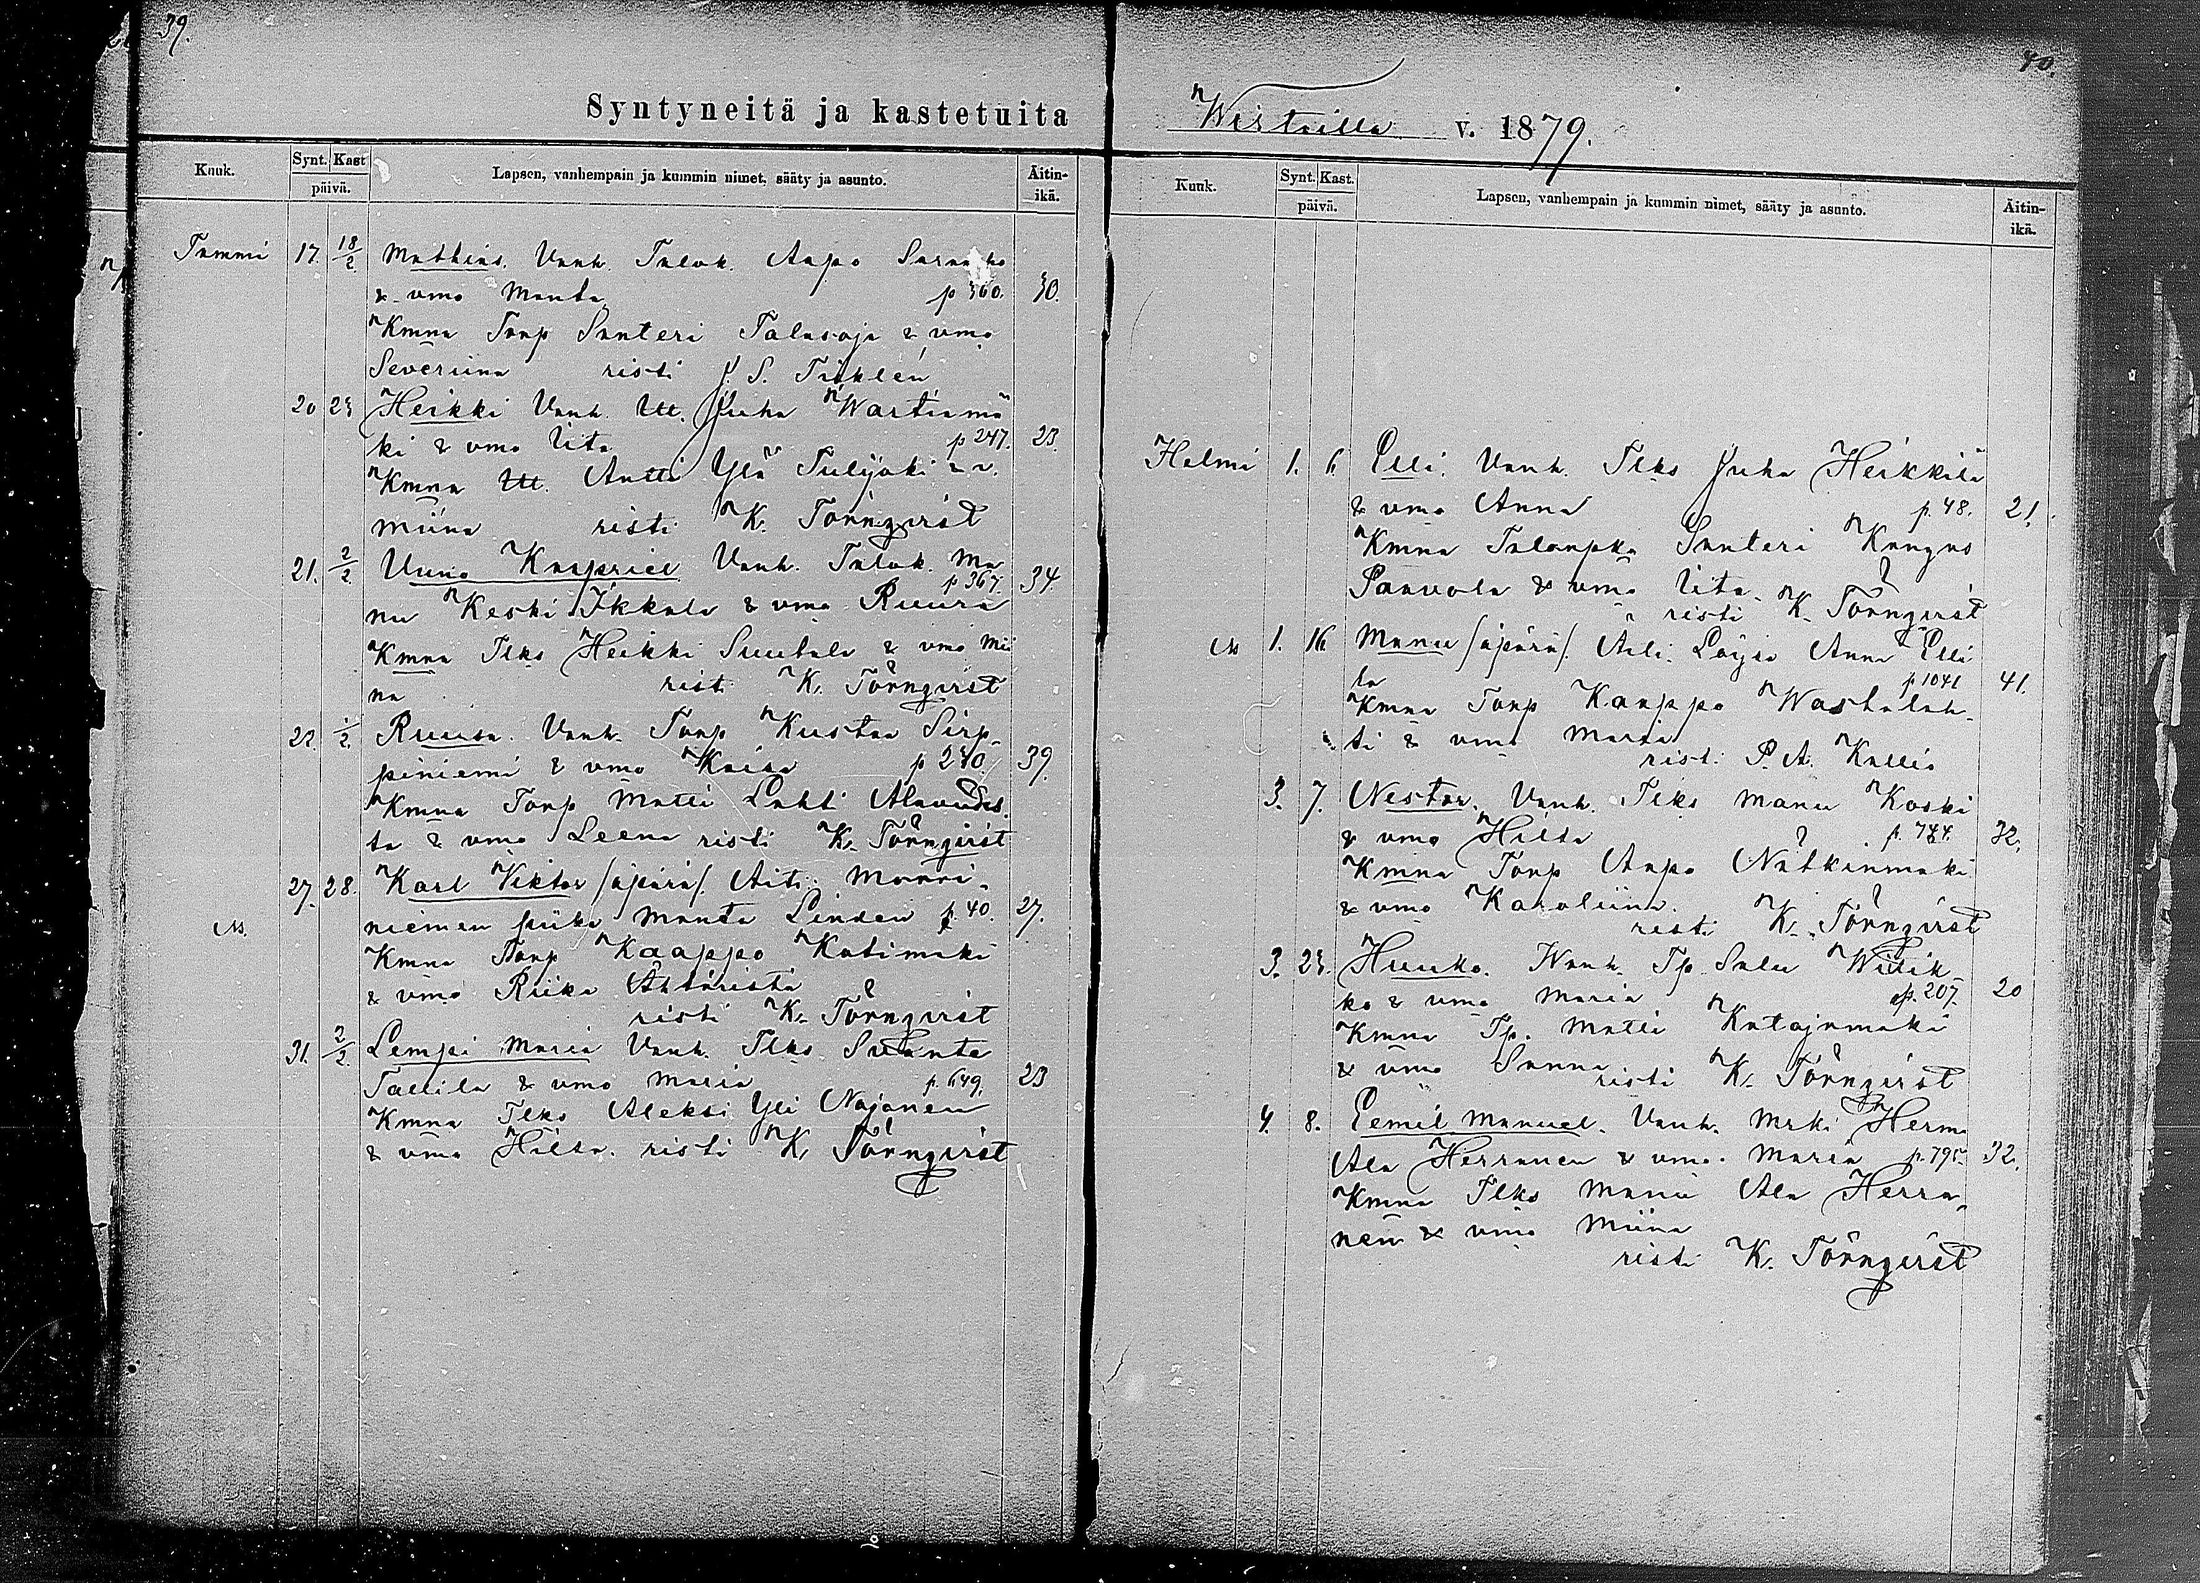 39.
Syntyneitä ja kastetuita
Kuuk.
Synt. Kast
päivä.
Lapsen, vanhempain ja kummin nimet, sääty ja asunto.
Äitin-
ikä.
Tammi 17. 18/2 Mathias. Vanh. Talok. Aapo
& vmo Manta p 360. 30.
Kmna Torp Santeri Talasoja & vmo
Severiina risti J. S.
20 23 Heikki Vanh. Itll. Juha Wartiamä
ki & vmo Iita p 247. 23
Kmna Itll. Antti Ylä Tulijoki & v.
Miina risti K. Törnqvist
21. 2/2 Uuno Kaapriel Vanh. Talok. Ma
p 367. 34.
nu Keski Ikkala & vmo Ruura
Kmna Tlks Heikki Suutala & vmo Mii
na risti K. Törnqvist
22. 2/2 Ruusa. Vanh. Torp Kustaa Sirp-
piniemi & vmo Kaisa p 240. 39.
Kmna Torp Matti Lahti Alavudes
ta & vmo Leena risti K. Törnqvist
27. 28. Karl Viktor /äpärä/. Äiti Monni-
niemen piika Manta Linden p. 40. 27.
Kmna Torp Kaappo Katimäki
& vmo Riika Ähtäristä
risti K. Törnqvist
31. 2/2 Lempi Maria Vanh. Tlks Svante
Tallila & vmo Maria p. 649. 23
Kmna Tlks Aleksi Yli Nojanen
& vmo Hilta. risti K. Törnqvist
40.
Wirtailla v. 1879.
Kuuk.
Synt. Kast.
päivä.
Lapsen, vanhempain ja kummin nimet, sääty ja asunto.
Äitin-
ikä.
Helmi 1. 6 Elli. Vanh. Tlks Juha Heikkilä
& vmo Anna p. 48. 21.
Kmna Talonpka Santeri Kangas
Paavola & vmo Iita.
risti K. Törnqvist
1. 16 Manu /äpärä/. Äiti. Löysä Anna Elli
la p 1041 41.
Kmna Torp Kaappo Wastalah-
ti & vmo Maria
risti P. A. Kallio
3. 7. Nestor. Vanh. Tlks Manu Koski
& vmo Hilta p. 744. 32.
Kmna Torp Aapo Nätkinmäki
& vmo Karoliina.
risti K. Törnqvist
3. 23. Huuko. Vanh. Tp. Salu Witik-
ko & vmo Maria p. 207. 20
Kmna Tp. Matti Katajamäki
& vmo Sanna
risti K. Törnqvist
4. 8. Eemil Manuel. Vanh. Mrki Herm.
Ala Herranen & vmo. Maria p. 795 32.
Kmna Tlks Manu Ala Herra-
nen & vmo Miina
risti K. Törnqvist